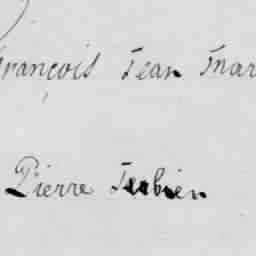 François Jean Mar
Pierre Terbien